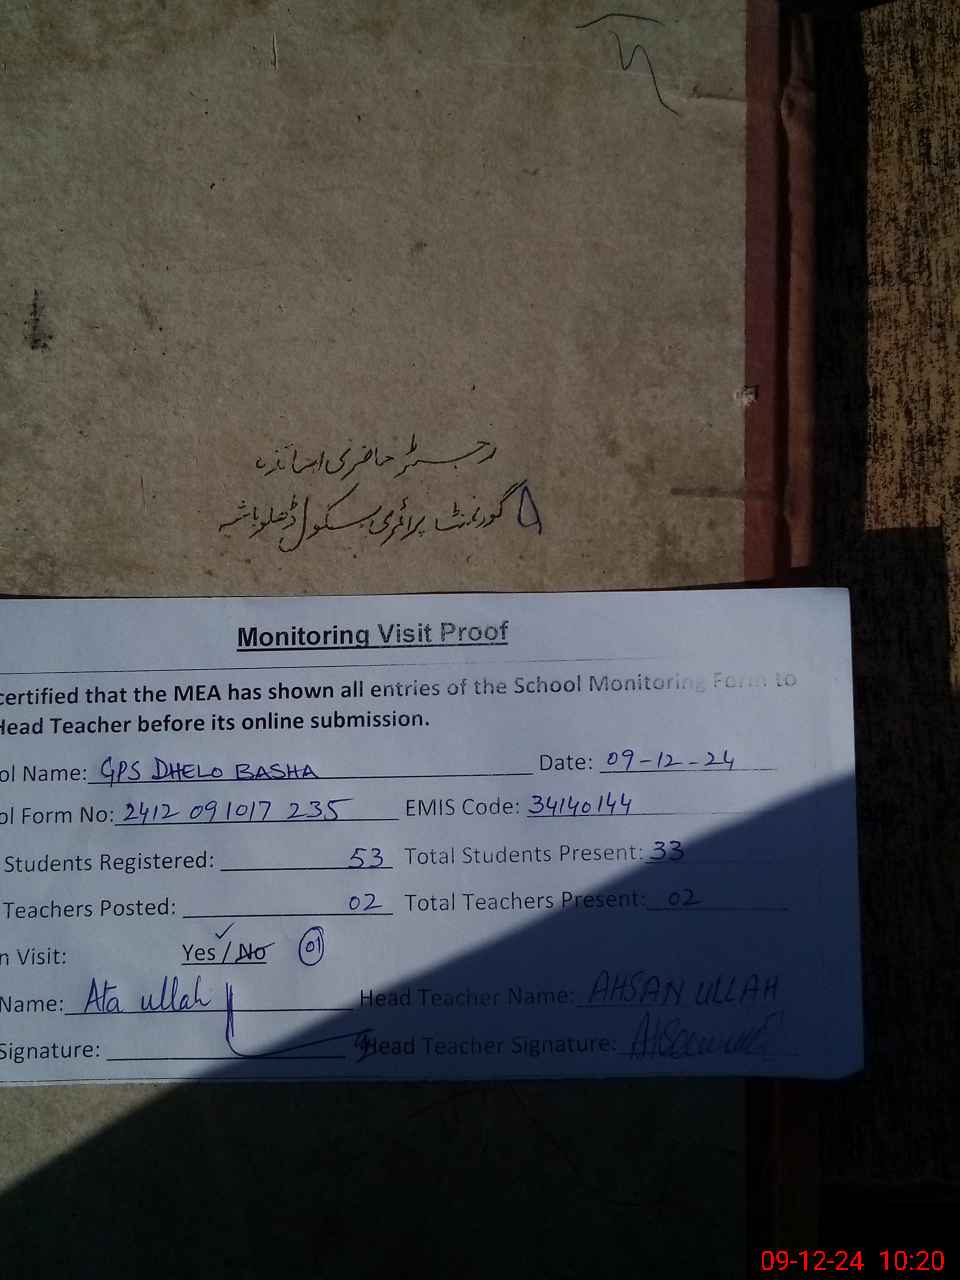 رجسٹر حاضری اساتذہ
گورنمنٹ پرائمری سکول ڈھلو باشہ
Monitoring Visit Proof
certified that the MEA has shown all entries of the School Monitoring Form to
Head Teacher before its online submission.
ol Name: GPS DHELO BASHA Date: 09-12-24
ol Form No: 2412 091017 235 EMIS Code: 34140144
Students Registered: 53 Total Students Present: 33
Teachers Posted: 02 Total Teachers Present: 02
n Visit: Yes/No 01
Name: Ata ullah Head Teacher Name: AHSAN ULLAH
Signature: Head Teacher Signature:
09-12-24 10:20